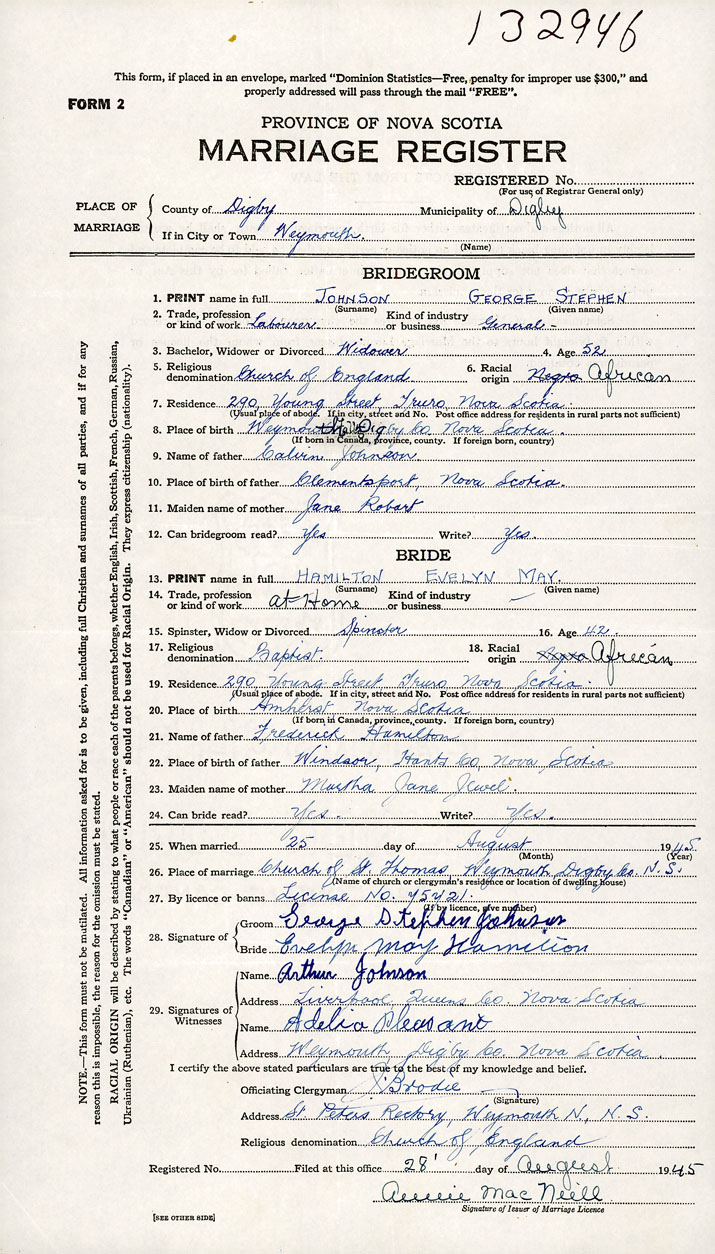 132946
This form, if placed in an envelope, marked "Dominion Statistics—Free, penalty for improper use $300," and
properly addressed will pass through the mail "FREE".
FORM 2
PROVINCE OF NOVA SCOTIA
MARRIAGE REGISTER
REGISTERED No.
(For use of Registrar General only)
PLACE OF MARRIAGE
County of Digby Municipality of Digby
If in City or Town Weymouth.
(Name)
BRIDEGROOM
1. PRINT name in full JOHNSON GEORGE STEPHEN
(Surname) (Given name)
2. Trade, profession or kind of work Labourer. Kind of industry or business General -
3. Bachelor, Widower or Divorced Widower 4. Age 52
5. Religious denomination Church of England 6. Racial origin Negro African
7. Residence 290 Young Street, Truro, Nova Scotia.
(Usual place of abode. If in city, street and No. Post office address for residents in rural parts not sufficient)
8. Place of birth Weymouth Digby Co. Nova Scotia.
(If born in Canada, province, county. If foreign born, country)
9. Name of father Calvin Johnson
10. Place of birth of father Clementsport, Nova Scotia.
11. Maiden name of mother Jane Robart
12. Can bridegroom read? Yes Write? Yes.
BRIDE
13. PRINT name in full HAMILTON EVELYN MAY.
(Surname) (Given name)
14. Trade, profession or kind of work at Home Kind of industry or business —
15. Spinster, Widow or Divorced Spinster 16. Age 42.
17. Religious denomination Baptist. 18. Racial origin Negro African
19. Residence 290, Young Street Truro Nova Scotia.
(Usual place of abode. If in city, street and No. Post office address for residents in rural parts not sufficient)
20. Place of birth Amherst Nova Scotia
(If born in Canada, province, county. If foreign born, country)
21. Name of father Frederick Hamilton
22. Place of birth of father Windsor, Hants Co, Nova Scotia
23. Maiden name of mother Martha Jane Jewel.
24. Can bride read? Yes. Write? Yes.
25. When married 25 day of August 1945.
(Month) (Year)
26. Place of marriage Church of St. Thomas Weymouth Digby Co. N.S.
(Name of church or clergyman's residence or location of dwelling house)
27. By licence or banns License No. 45421.
(If by licence, give number)
28. Signature of
Groom George Stephen Johnson
Bride Evelyn May Hamilton
29. Signatures of Witnesses
Name Arthur Johnson
Address Liverpool, Queens Co. Nova Scotia
Name Adelia Pleasant
Address Weymouth Digby Co. Nova Scotia.
I certify the above stated particulars are true to the best of my knowledge and belief.
Officiating Clergyman Brodie
(Signature)
Address St. Peters Rectory, Weymouth N, N.S.
Religious denomination Church of England
Registered No. Filed at this office 28' day of August 1945
Annie MacNeill
Signature of Issuer of Marriage Licence
[SEE OTHER SIDE]
NOTE.—This form must not be mutilated. All information asked for is to be given, including full Christian and surnames of all parties, and if for any
reason this is impossible, the reason for the omission must be stated.
RACIAL ORIGIN will be described by stating to what people or race each of the parents belongs, whether English, Irish, Scottish, French, German, Russian,
Ukrainian (Ruthenian), etc. The words "Canadian" or "American" should not be used for Racial Origin. They express citizenship (nationality).